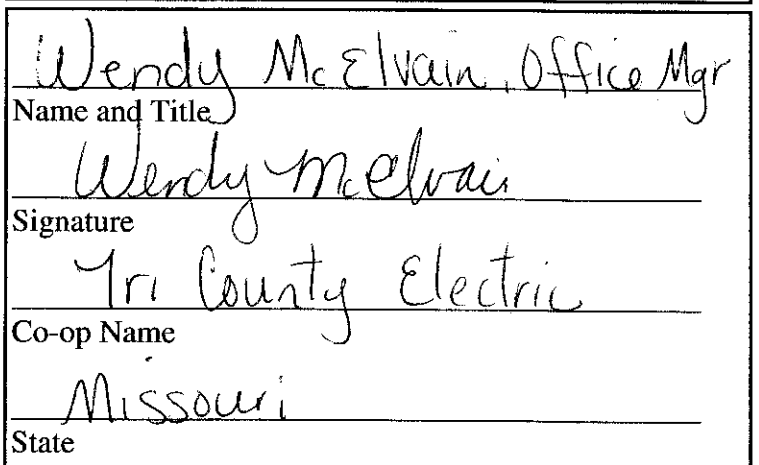 Wendy McElvain, Office Mgr
Name and Title
Wendy McElvain
Signature
Tri County Electric
Co-op Name
Missouri
State